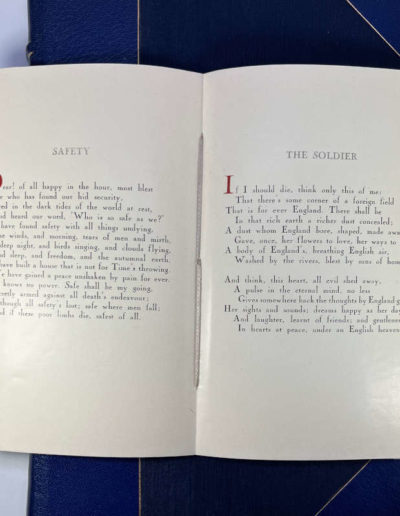 SAFETY
ear! of all happy in the hour, most blest
e who has found our hid security,
ed in the dark tides of the world at rest,
nd heard our word, 'Who is so safe as we?'
have found safety with all things undying,
he winds, and morning, tears of men and mirth,
deep night, and birds singing, and clouds flying,
nd sleep, and freedom, and the autumnal earth.
have built a house that is not for Time's throwing.
We have gained a peace unshaken by pain for ever.
knows no power. Safe shall be my going,
cretly armed against all death's endeavour;
though all safety's lost; safe where men fall;
nd if these poor limbs die, safest of all.
THE SOLDIER
If I should die, think only this of me:
That there's some corner of a foreign field
That is for ever England. There shall be
In that rich earth a richer dust concealed;
A dust whom England bore, shaped, made awa
Gave, once, her flowers to love, her ways to
A body of England's, breathing English air,
Washed by the rivers, blest by suns of hom
And think, this heart, all evil shed away,
A pulse in the eternal mind, no less
Gives somewhere back the thoughts by England g
Her sights and sounds; dreams happy as her day
And laughter, learnt of friends; and gentlenes
In hearts at peace, under an English heaven